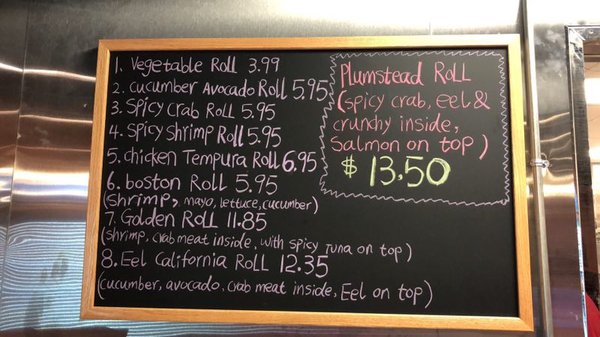 1. Vegetable Roll 3.99
2. cucumber Avocado Roll 5.95
3. Spicy crab Roll 5.95
4. Spicy Shrimp Roll 5.95
5. chicken Tempura Roll 6.95
6. boston Roll 5.95
(Shrimp, mayo, lettuce, cucumber)
7. Golden Roll 11.85
(shrimp, crab meat inside, with spicy Tuna on top)
8. Eel California Roll 12.35
(cucumber, avocado, crab meat inside, Eel on top)
Plumstead Roll
(spicy crab, eel &
crunchy inside,
Salmon on top)
$ 13.50